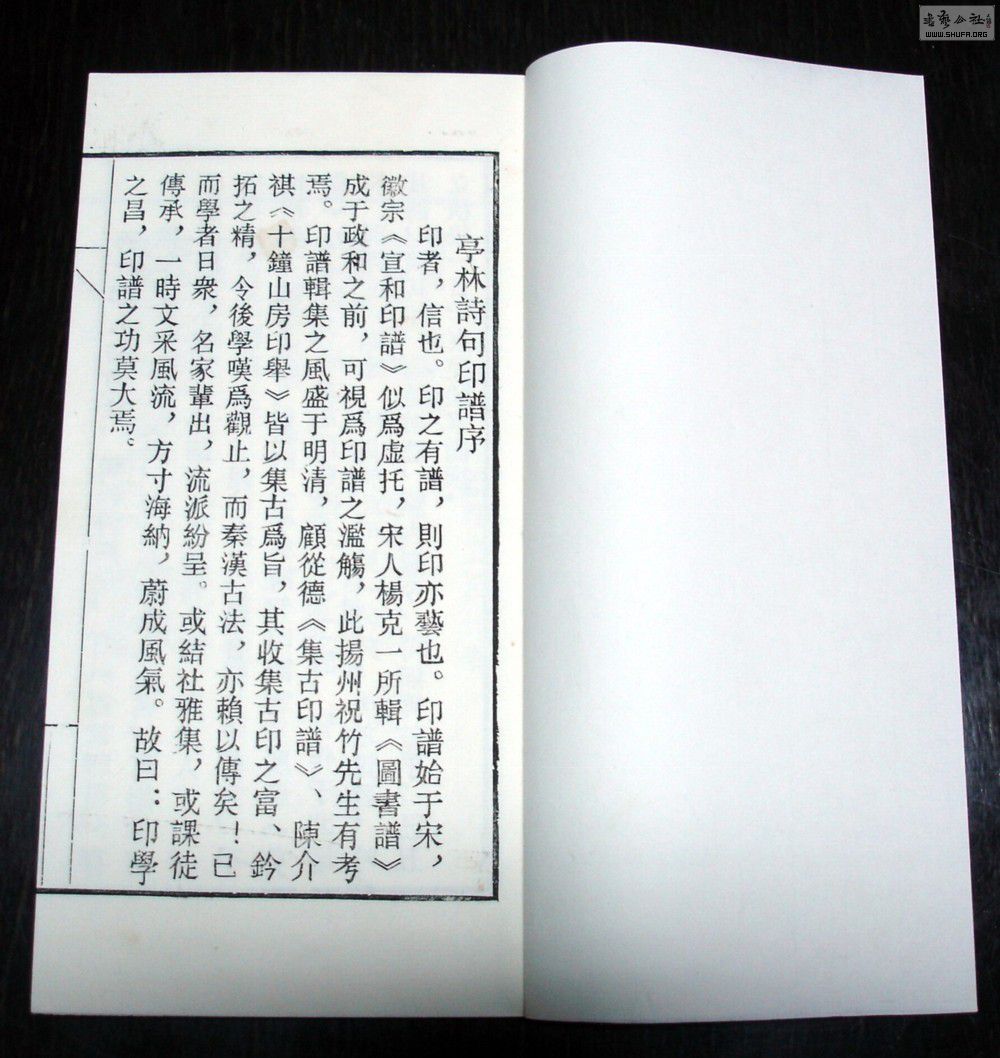 亭林詩句印譜序
印者，信也。印之有譜，則印亦藝也。印譜始于宋，
徽宗《宣和印譜》似爲虛托，宋人楊克一所輯《圖書譜》
成于政和之前，可視爲印譜之濫觴，此揚州祝竹先生有考
焉。印譜輯集之風盛于明清，顧從德《集古印譜》、陳介
祺《十鐘山房印舉》皆以集古爲旨，其收集古印之富、鈐
拓之精，令後學嘆爲觀止，而秦漢古法，亦賴以傳矣！已
而學者日衆，名家輩出，流派紛呈。或結社雅集，或課徒
傳承，一時文采風流，方寸海納，蔚成風氣。故曰：印學
之昌，印譜之功莫大焉。
WWW.SHUFA.ORG